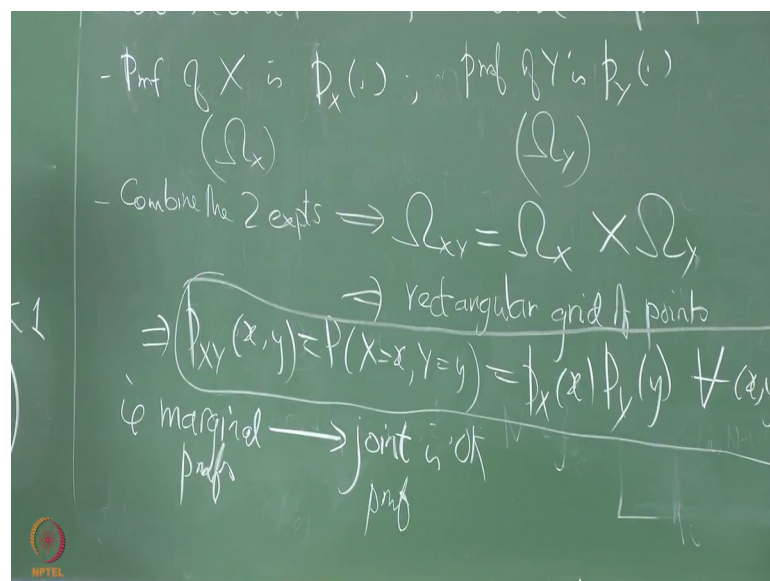 - Pmf of X is p_X(.) ; pmf of Y is p_Y(.)
(Ω_X) (Ω_Y)
- Combine the 2 expts ⇒ Ω_XY = Ω_X × Ω_Y
⇒ rectangular grid of points
< 1
⇒ p_XY(x,y) = P(X=x, Y=y) = p_X(x) p_Y(y) ∀ (x,y
ie marginal → joint is ok
pmfs pmf
NPTEL